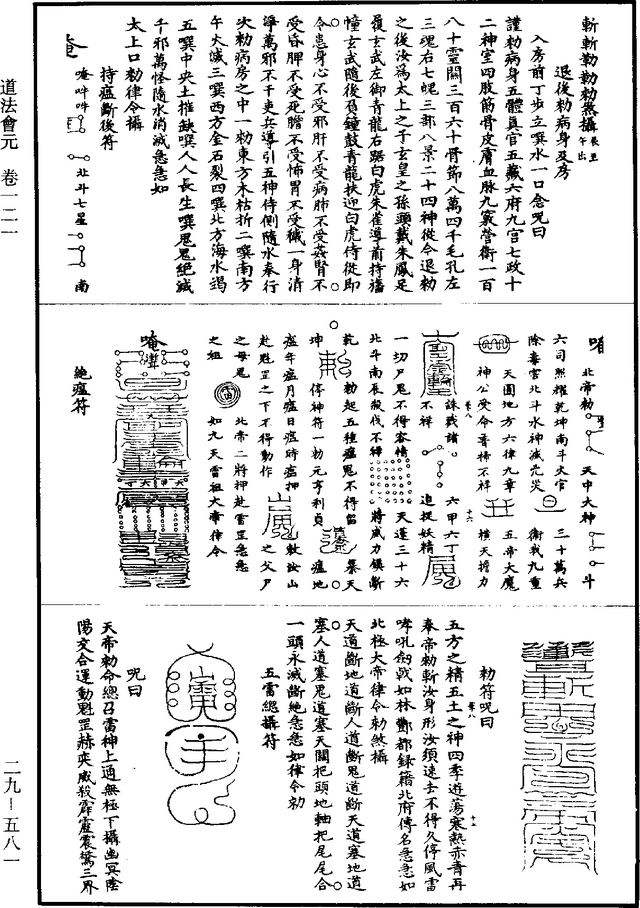 斬斬勒勒勅煞攝
退後勅病身及房
入房前丁步立噀水一口念呪曰
謹勅病身五體真官五藏六府九宫七政十
二神室四肢筋骨皮膚血脉九竅營衛一百
八十靈關三百六十骨節八萬四千毛孔左
三魂右七魄三部八景二十四神從今退勅
之後汝為太上之子玄皇之孫頭戴朱鳳足
履玄武左御青龍右踞白虎朱雀導前持旛
幢玄武隨後負鐘鼓青龍扶迎白虎侍從即
令患身心不受邪肝不受病肺不受姦腎不
受昏脾不受死膽不受怖胃不受穢一身清
寧萬邪不干吏兵導引五神侍側隨水奉行
次勅病房之中一勅東方木枯折二噀南方
午火滅三噀西方金石裂四噀北方海水竭
五噀中央土摧缺噀人人長生噀鬼鬼絕滅
千邪萬怪隨水消滅急急如
太上口勅律令攝
持瘟斷後符
唵吽吽
北斗七星
南
北帝勅
天中大神
斗
六司照耀乾坤南斗火官
三十萬兵
除毒害北斗水神滅㐫災
衛我九重
天圓地方六律九章
五帝大魔
神公受命普掃不祥
橫天擔力
誅戮諸
六甲六丁
不祥
追捉妖精
一切尸鬼不得容情
天蓬三十六
北斗南辰殺伐不禅
將威力鎮斷
乾
勅起五種瘟鬼不得留
業天
坤
停神符一勅元亨利貞
瘟地
瘟年瘟月瘟日瘟時瘟押
敕汝山
赴魁罡之下不得動作
之父尸
之毋鬼
北帝二將押赴雷罡急急
之祖
如九天雷祖大帝律令
絶瘟符
勅符呪曰
五方之精五土之神四季遊蕩寒熱赤青再
奉帝勅斬汝身形汝須速去不得久停風雷
哮吼劔戟如林酆都録籍北府傳名急急如
北極大帝律令勅煞攝
天道斷地道斷人道斷鬼道斷天道塞地道
塞人道塞鬼道塞天關把頭地軸把尾尾合
一頭永滅斷絶急急如律令勅
五雷總攝符
呪曰
天帝勅命總召雷神上通無極下攝幽冥陰
陽交合運動魁罡赫奕威殺霹靂震驚三界
道法會元 卷一二一
二九－五八一